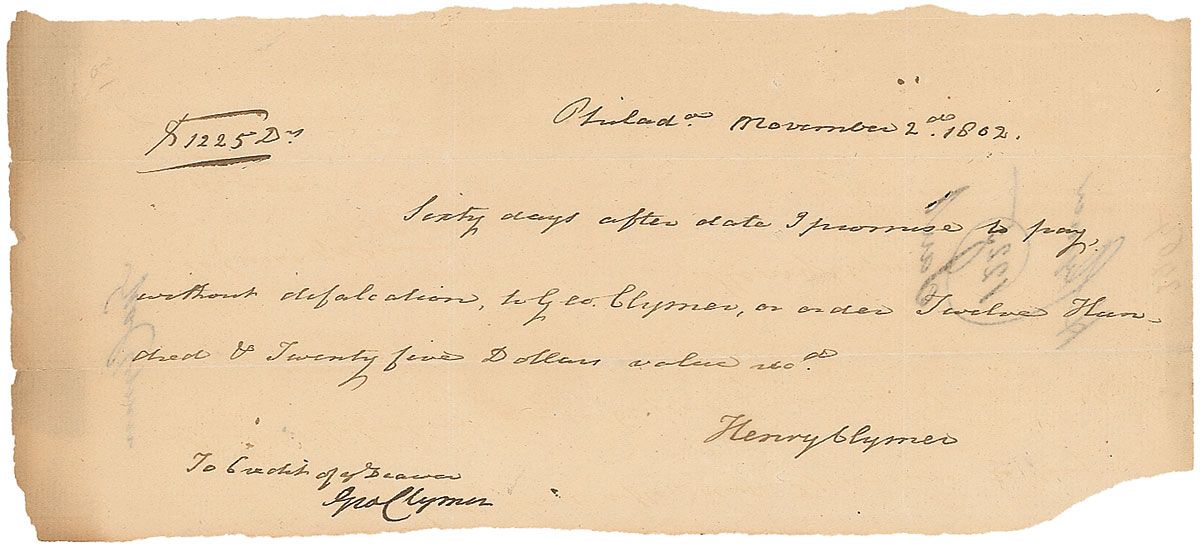 $1225 Ds
Philada. November 2d. 1802.
Sixty days after date I promise to pay,
without defalcation, to Geo. Clymer, or order Twelve Hun-
dred & Twenty five Dollars value recd.
Henry Clymer
To Credit of ye Drawer
Geo Clymer